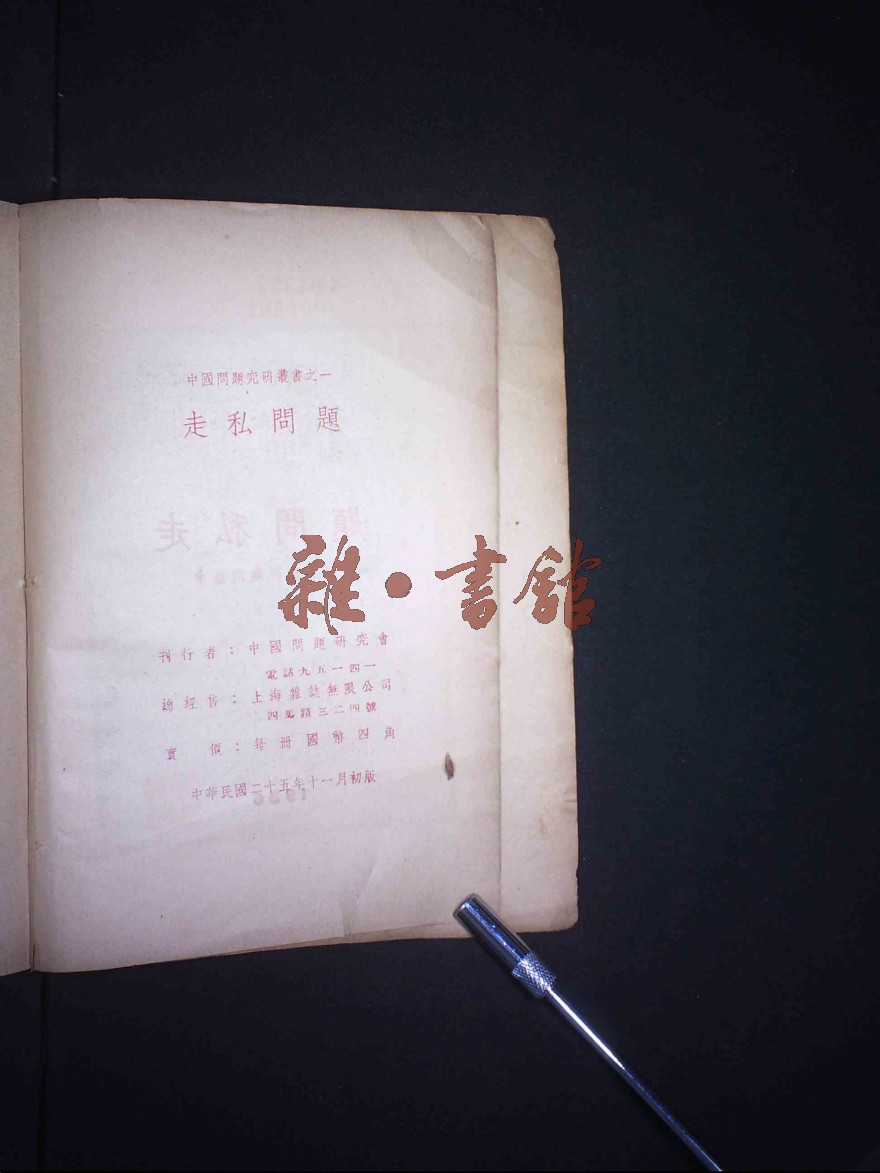 中國問題究研叢書之一
走私問題
雜・書館
刊行者：中國問題研究會
電話九五一四一
總經售：上海雜誌無限公司
四馬路三二四號
實價：每冊國幣四角
中華民國二十五年十一月初版